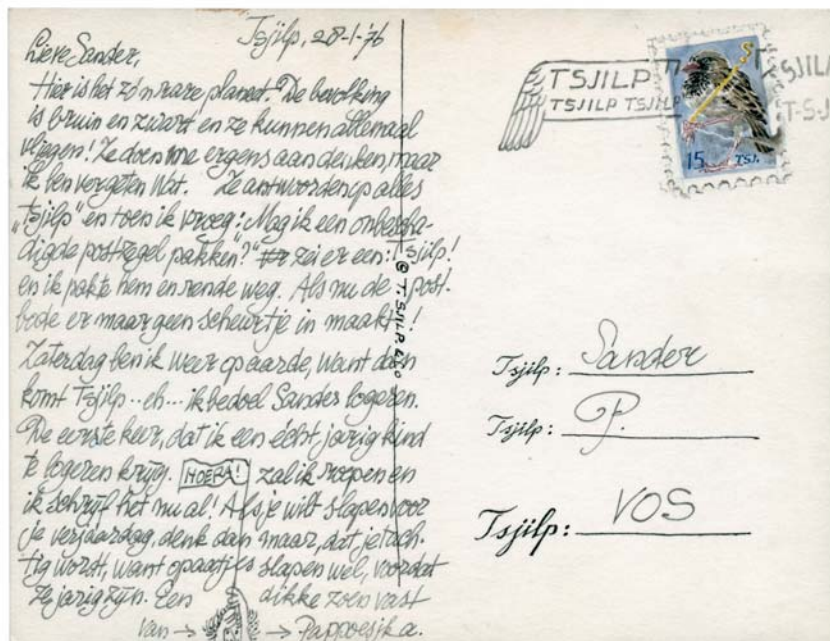 Tsjilp, 28-1-'76
Lieve Sander,
Hier is het zó'n rare planeet. De bevolking
is bruin en zwart en ze kunnen allemaal
vliegen! Ze doen me ergens aan denken, maar
ik ben vergeten wat. Ze antwoorden op alles
„Tsjilp” en toen ik vroeg: „Mag ik een onbescha-
digde postzegel pakken?” zei er een: Tsjilp!
en ik pakte hem en rende weg. Als nu de post-
bode er maar geen scheurtje in maakt!
Zaterdag ben ik weer op aarde, want dan
komt Tsjilp.. eh... ik bedoel Sander logeren.
De eerste keer, dat ik een écht jarig kind
te logeren krijg. HOERA! zal ik roepen en
ik schrijf het nu al! Als je wilt slapen voor
je verjaardag, denk dan maar, dat je tach-
tig wordt, want opaatjes slapen wel, voordat
ze jarig zijn. Een dikke zoen vast
van → → Pappoesjka.
© T. SJILP & Co
TSJILP T
TSJILP TSJILP
T-SJILP
T-SJ
15 TSJ.
Tsjilp: Sander
Tsjilp: P.
Tsjilp: VOS